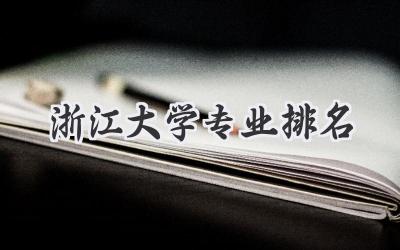 浙江大学专业排名